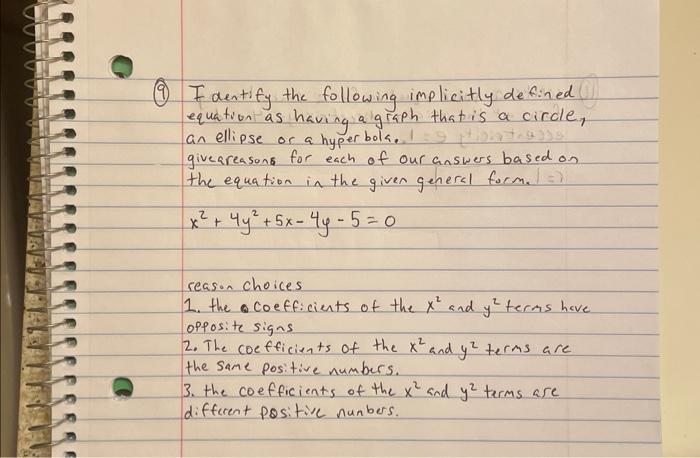 9 Identify the following implicitly defined
equation as having a graph that is a circle,
an ellipse or a hyperbola.
give a reasons for each of our answers based on
the equation in the given general form.
x² + 4y² + 5x - 4y - 5 = 0
reason choices
1. the coefficients of the x² and y² terms have
opposite signs
2. The coefficients of the x² and y² terms are
the same positive numbers.
3. the coefficients of the x² and y² terms are
different positive nunbers.